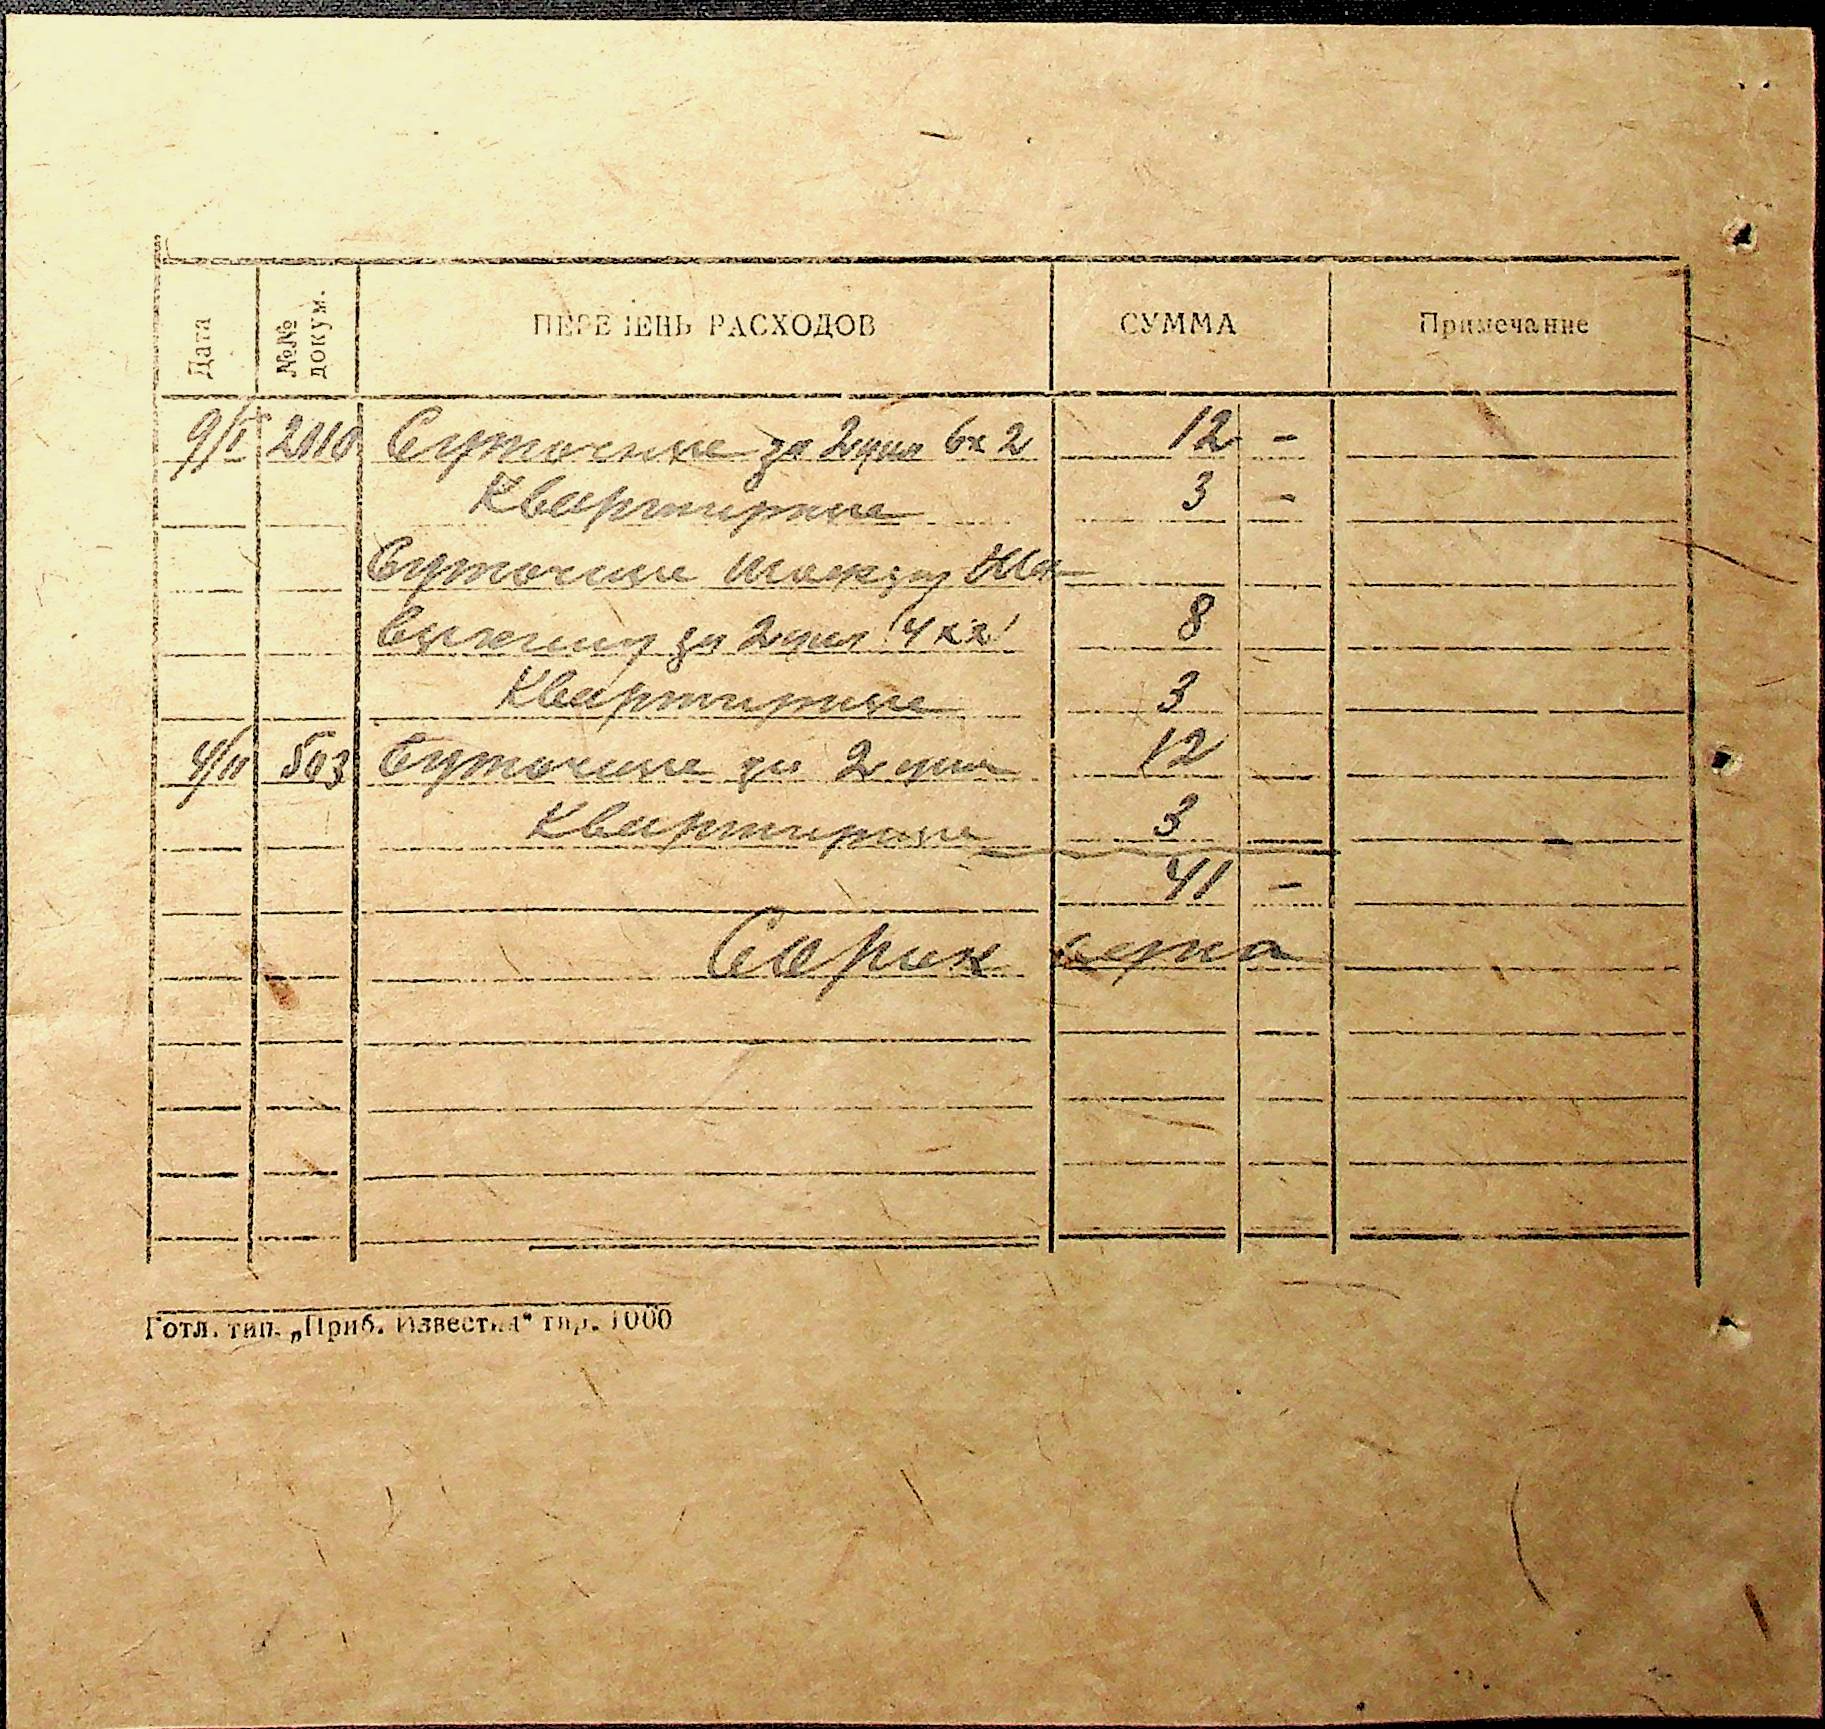 Дата №№ докум. ПЕРЕЧЕНЬ РАСХОДОВ СУММА Примечание
9/I 2010 Суточные за 2 дня 6х2 12 -
Квартирные 3 -
Суточные
за 2 дня (4х2) 8
Квартирные 3
4/II 503 Суточные за 2 дня 12
Квартирные 3
41 -
Сорок
Готл. тип. „Приб. Известия“ тир. 1000